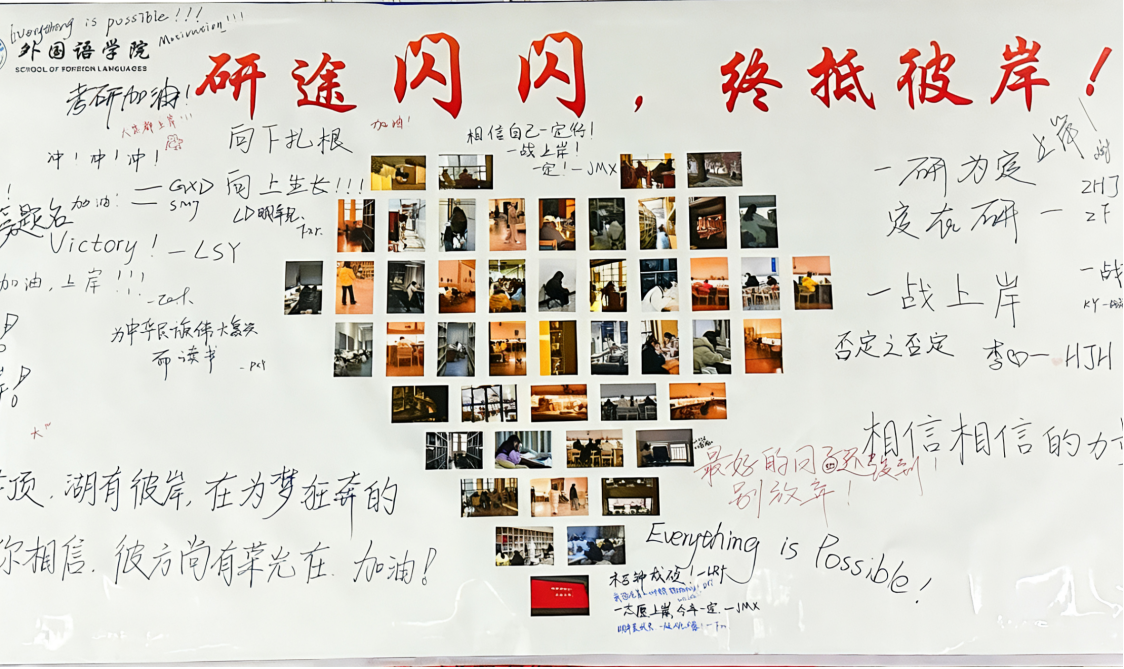 Everything is pussible!!!
Motivation!!!
外国语学院
SCHOOL OF FOREIGN LANGUAGES
研途闪闪，终抵彼岸！
考研加油！
加油！
冲！冲！冲！
向下扎根
向上生长!!!
相信自己一定行！
一战上岸！
一定！—JMX
加油：
— GXD
SMJ
题名
Victory！— LSY
加油，上岸!!!
为中华民族伟大复兴
而读书
一研为定
上岸！
定在研 —
ZHJ
ZF
一战上岸
一战
否定之否定
李
— HJH
相信相信的力
顶，湖有彼岸，在为梦狂奔的
你相信，彼方尚有荣光在，加油！
最好的
别放弃！
Everything is Possible!
—LRT
一志愿上岸，今年一定—JMX